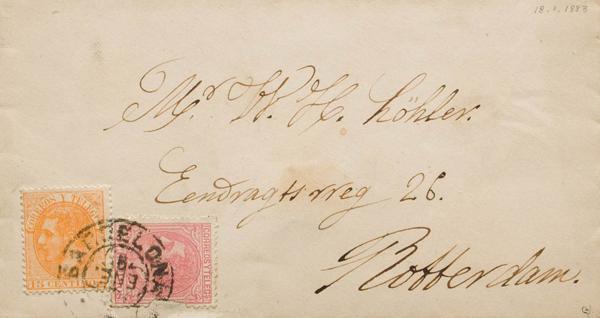 18.1.1883
Mr. W. H. Köhler.
Eendragtsweg 26.
Rotterdam.
CORREOS Y TELEG
15 CENT
CORREOS Y TELEG
BARCELONA